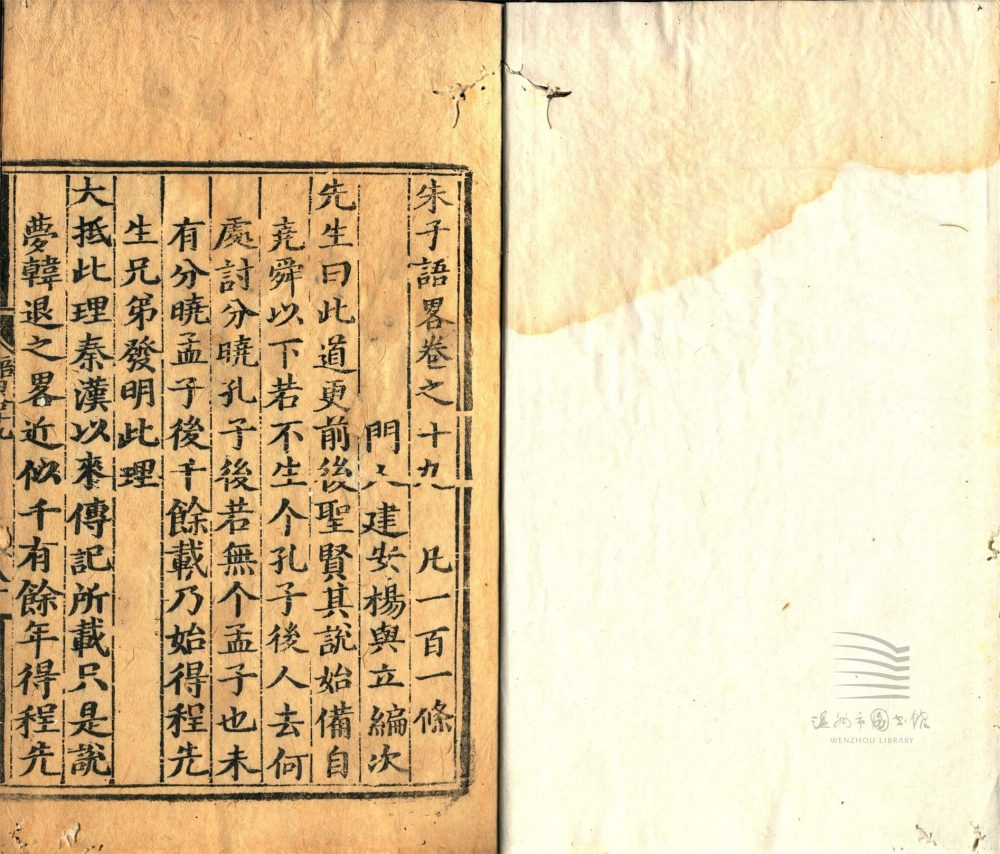 朱子語畧卷之十九　凡一百一條
門人建安楊與立編次
先生曰此道更前後聖賢其說始備自
堯舜以下若不生个孔子後人去何
處討分曉孔子後若無个孟子也未
有分曉孟子後千餘載乃始得程先
生兄弟發明此理
大抵此理秦漢以來傳記所載只是說
夢韓退之畧近似千有餘年得程先
温州市图书馆
WENZHOU LIBRARY